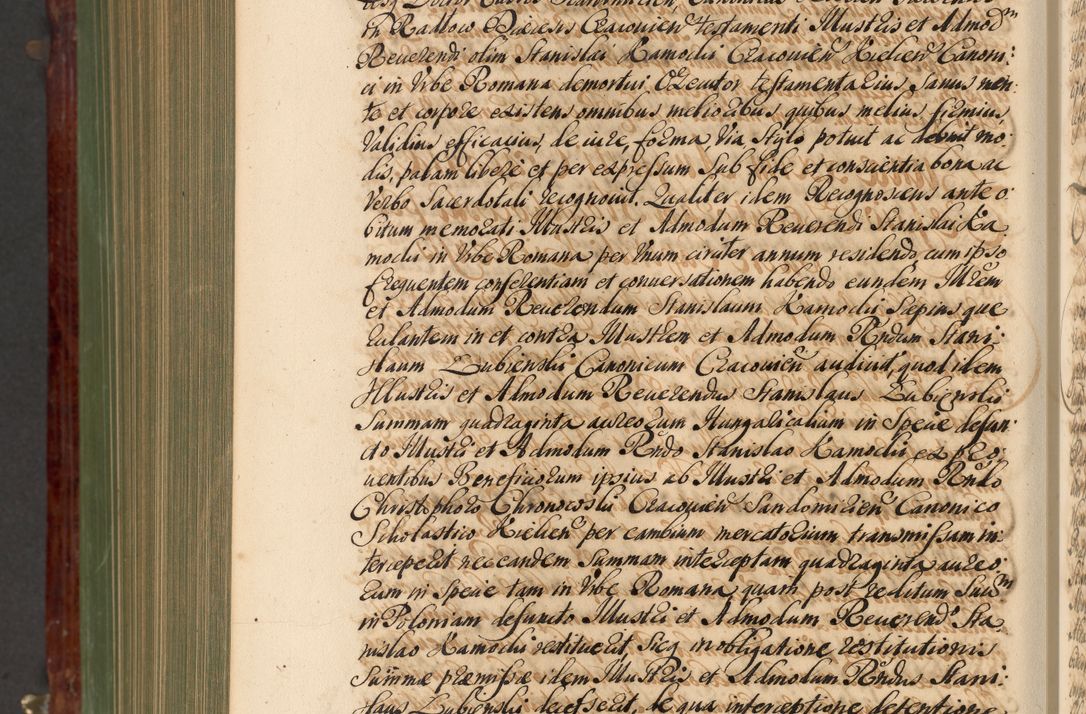 in Radłow Diecesis Cracovien testamenti Illustris et Admod͞m
Reverendi olim Stanislai Kamocki Cracovien Kielcien Canoni:
ci in Urbe Romana demortui Executor testamentarius, Sanus men
te et corpore existens omnibus melioribus quibus melius firmius,
Validius efficacius, de iure, forma, Via Stylo potuit ac debuit mo:
dis, palam libere et per expressum Sub fide et conscientia bona ac
Verbo Sacerdotali recognovit. Qualiter idem Recognoscens ante o:
bitum memorati Illustris et Admodum Reverendi Stanislai Ka
mocki in Urbe Romana per Unum circiter annum residendo cum ipso
frequentem conferentiam et conversationem habendo eundem Illrem
et Admodum Reverendum Stanislaum Kamocki Sæpius que
rulantem in et contra Illustrem et Admodum Rndum Stani:
slaum Łubienski Canonicum Cracovien audivit, quod idem
Illustris et Admodum Reverendus Stanislaus Łubienski
Summam quadraginta aureorum Hungaricalium in Specie defun
cto Illustri et Admodum Rndo Stanislao Kamocki ex pro:
ventibus Beneficiorum ipsius ab Illustri et Admodum Rndo
Christophoro Chronowski Cracovien Sandomirien Canonico
Scholastico Kielcien per cambium mercatorium transmissam in:
terceperit nec eandem Summam interceptam quadraginta aureo:
rum in Specie tam in Urbe Romana quam post reditum Suu͞m
in Poloniam defuncto Illustri et Admodum Reverendo Sta
nislao Kamocki restituerit, Sicq in obligatione restitutionis
Summæ præmissæ idem Illustris et Admodum Rndus Stani:
slaus Łubienski decesserit, de qua interceptione detentione